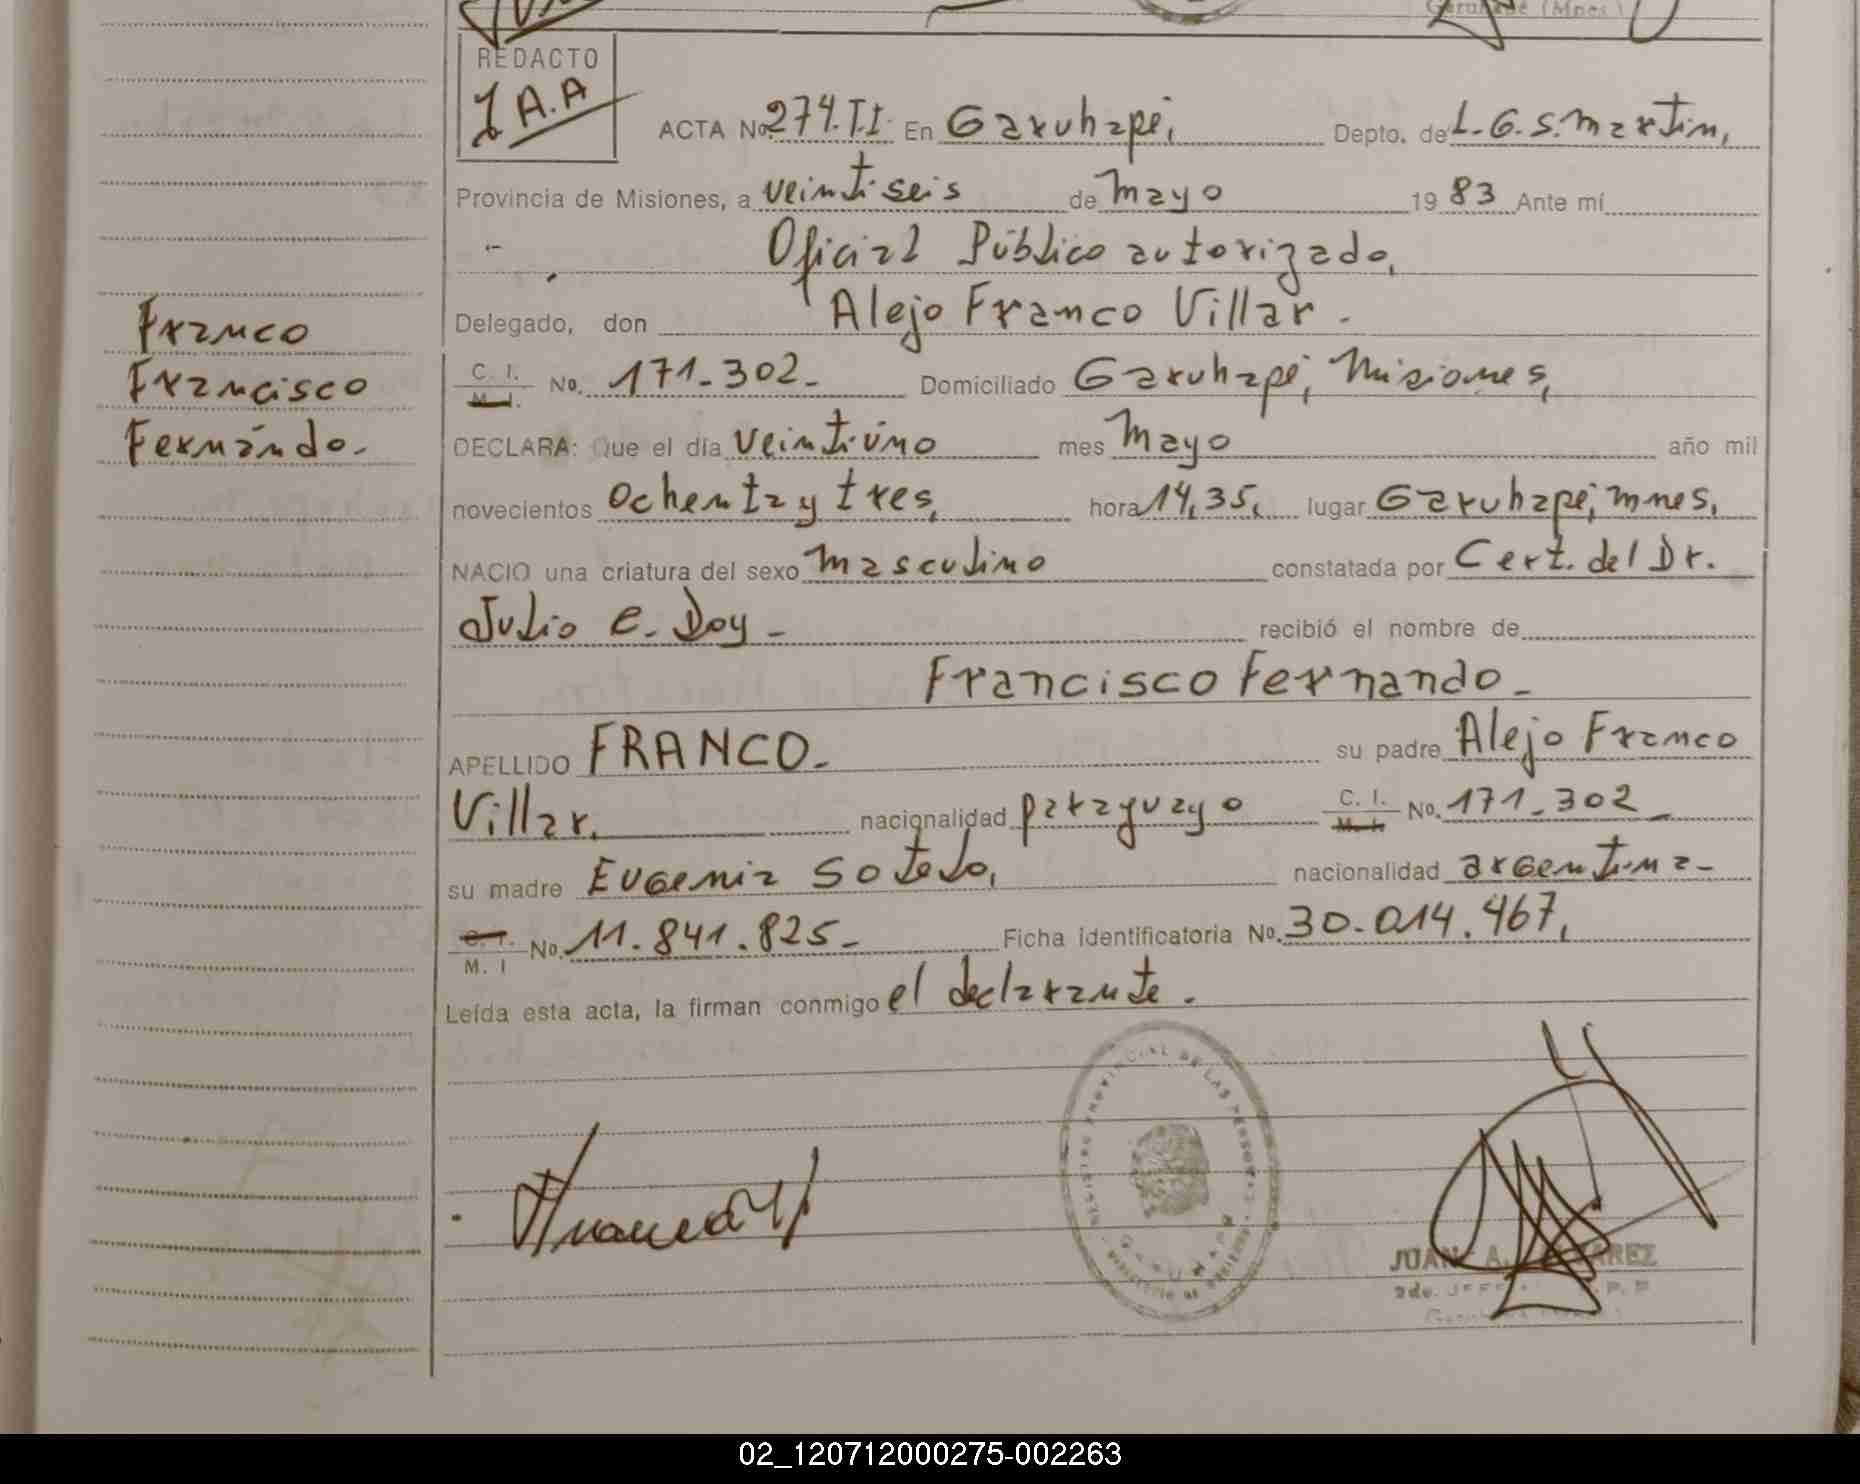 Garuhapé (Mnes.)
REDACTO
J A.A
ACTA No. 274.T.I. En Garuhapé, Depto. de L.G.S.Martin,
Provincia de Misiones, a veintiseis de Mayo 19 83 Ante mí
Oficial Público autorizado,
Delegado, don Alejo Franco Villar.
C. I. M. I. No. 171.302- Domiciliado Garuhapé, Misiones,
Franco
Francisco
Fernándo.-
DECLARA: Que el día veintiúno mes Mayo año mil
novecientos ochenta y tres, hora 14,35, lugar Garuhapé, mnes,
NACIO una criatura del sexo masculino constatada por Cert. del Dr.
Julio E. Doy - recibió el nombre de
Francisco Fernando -
APELLIDO FRANCO - su padre Alejo Franco
Villar, nacionalidad paraguayo C. I. M. I. No. 171.302 -
su madre Eugenia Sotelo, nacionalidad argentina -
C. I. M. I No. 11.841.825 - Ficha identificatoria No. 30.014.467,
Leída esta acta, la firman conmigo el declarante.
PROVINCIAL DE LAS PERSONAS
JUAN A.
2do.
02_120712000275-002263